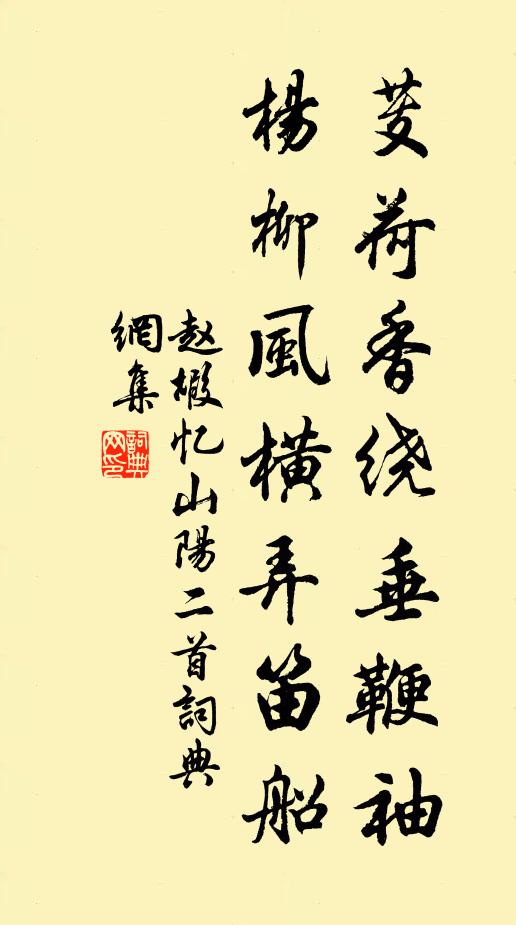 芰荷香绕垂鞭袖
楊柳風横弄笛船
赵嘏忆山陽二首詞典
網集
詞典網印